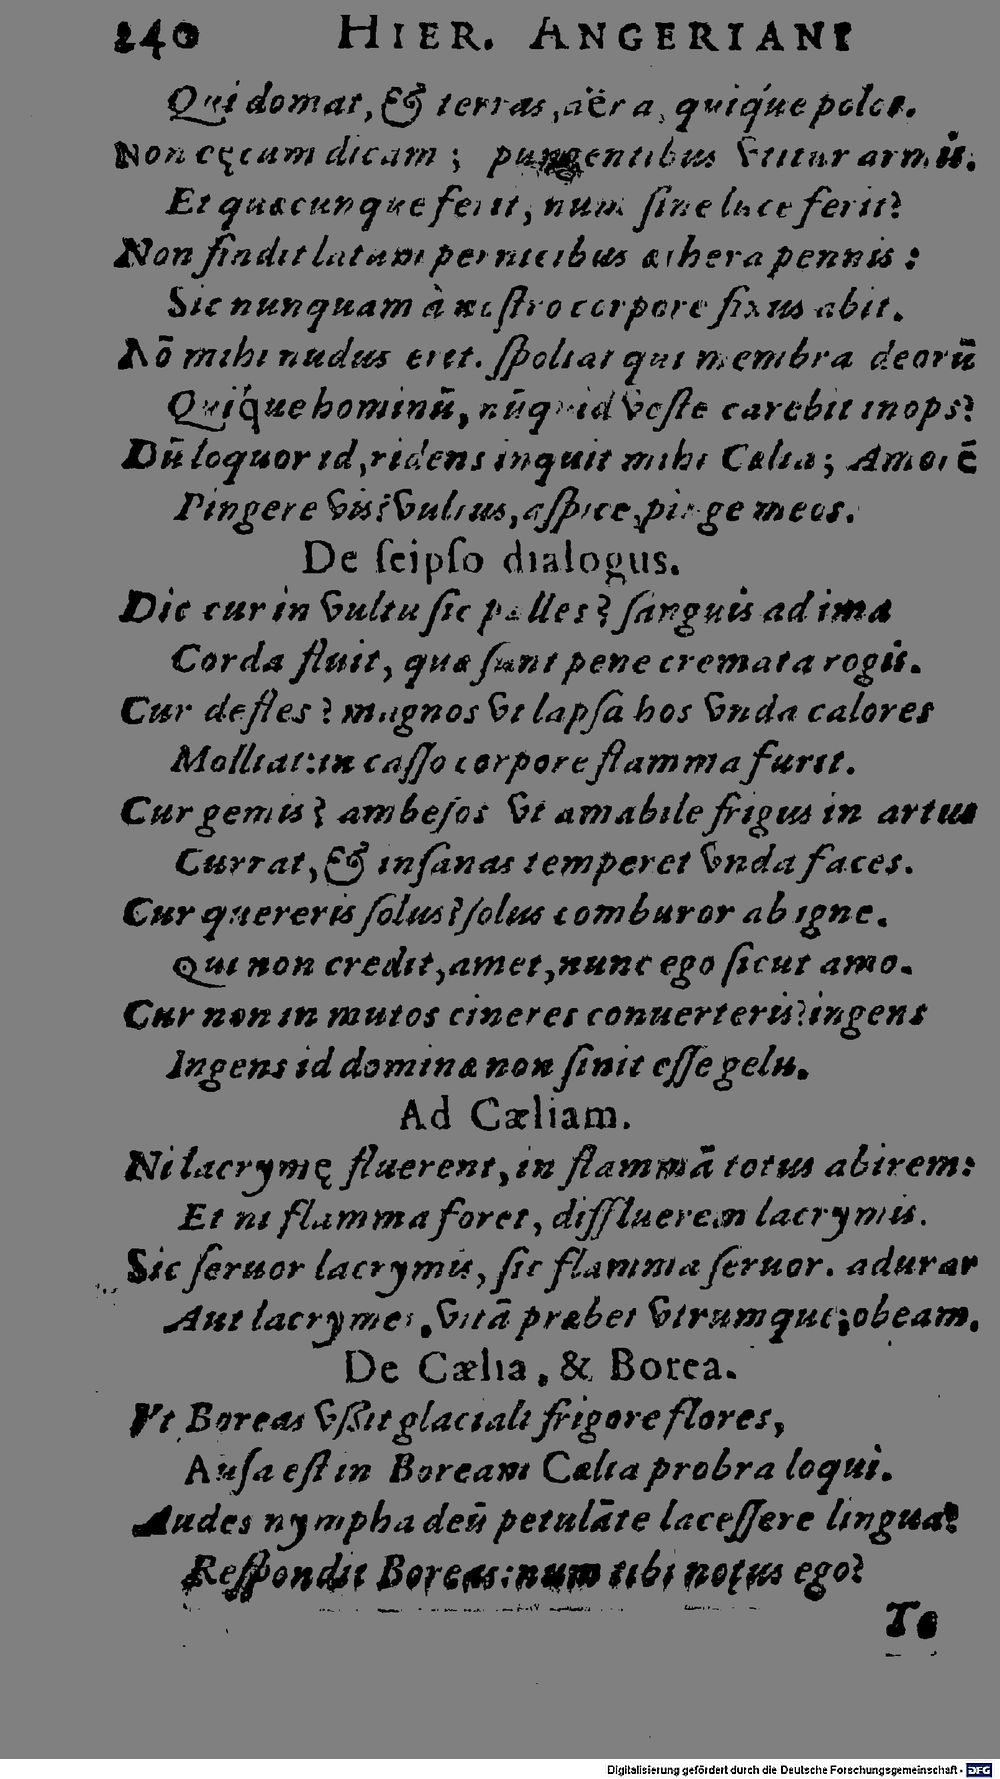 240 HIER. ANGERIANI
Qui domat, & terras, aëra, quiq́ue polos.
Non cęcum dicam; pungentibus vtitur armis.
Et quæcunque ferit, num sine luce ferit?
Non findit latum pernicibus æthera pennis:
Sic nunquam à nostro corpore fixus abit.
Nō mihi nudus erit. spoliat qui membra deorū
Quiq́ue hominū, nūquid veste carebit inops?
Dū loquor id, ridens inquit mihi Cælia; Amorē
Pingere vis? vultus, aspice, pinge meos.
De seipso dialogus.
Dic cur in vultu sic palles? sanguis ad ima
Corda fluit, quæ sunt pene cremata rogis.
Cur defles? magnos vt lapsa hos vnda calores
Molliat: in casso corpore flamma furit.
Cur gemis? ambesos vt amabile frigus in artus
Currat, & insanas temperet vnda faces.
Cur quereris solus? solus comburor ab igne.
Qui non credit, amet, nunc ego sicut amo.
Cur non in mutos cineres conuerteris? ingens
Ingens id dominæ non sinit esse gelu.
Ad Cæliam.
Ni lacrymę fluerent, in flammā totus abirem:
Et ni flamma foret, diffluerem lacrymis.
Sic seruor lacrymis, sic flamma seruor. adurar
Aut lacrymer, vitā præbet vtrumque; obeam.
De Cælia, & Borea.
Vt Boreas vssit glaciali frigore flores,
Ausa est in Boream Cælia probra loqui.
Audes nympha deū petulāte lacessere lingua?
Respondit Boreas: num tibi notus ego?
Te
Digitalisierung gefördert durch die Deutsche Forschungsgemeinschaft - DFG